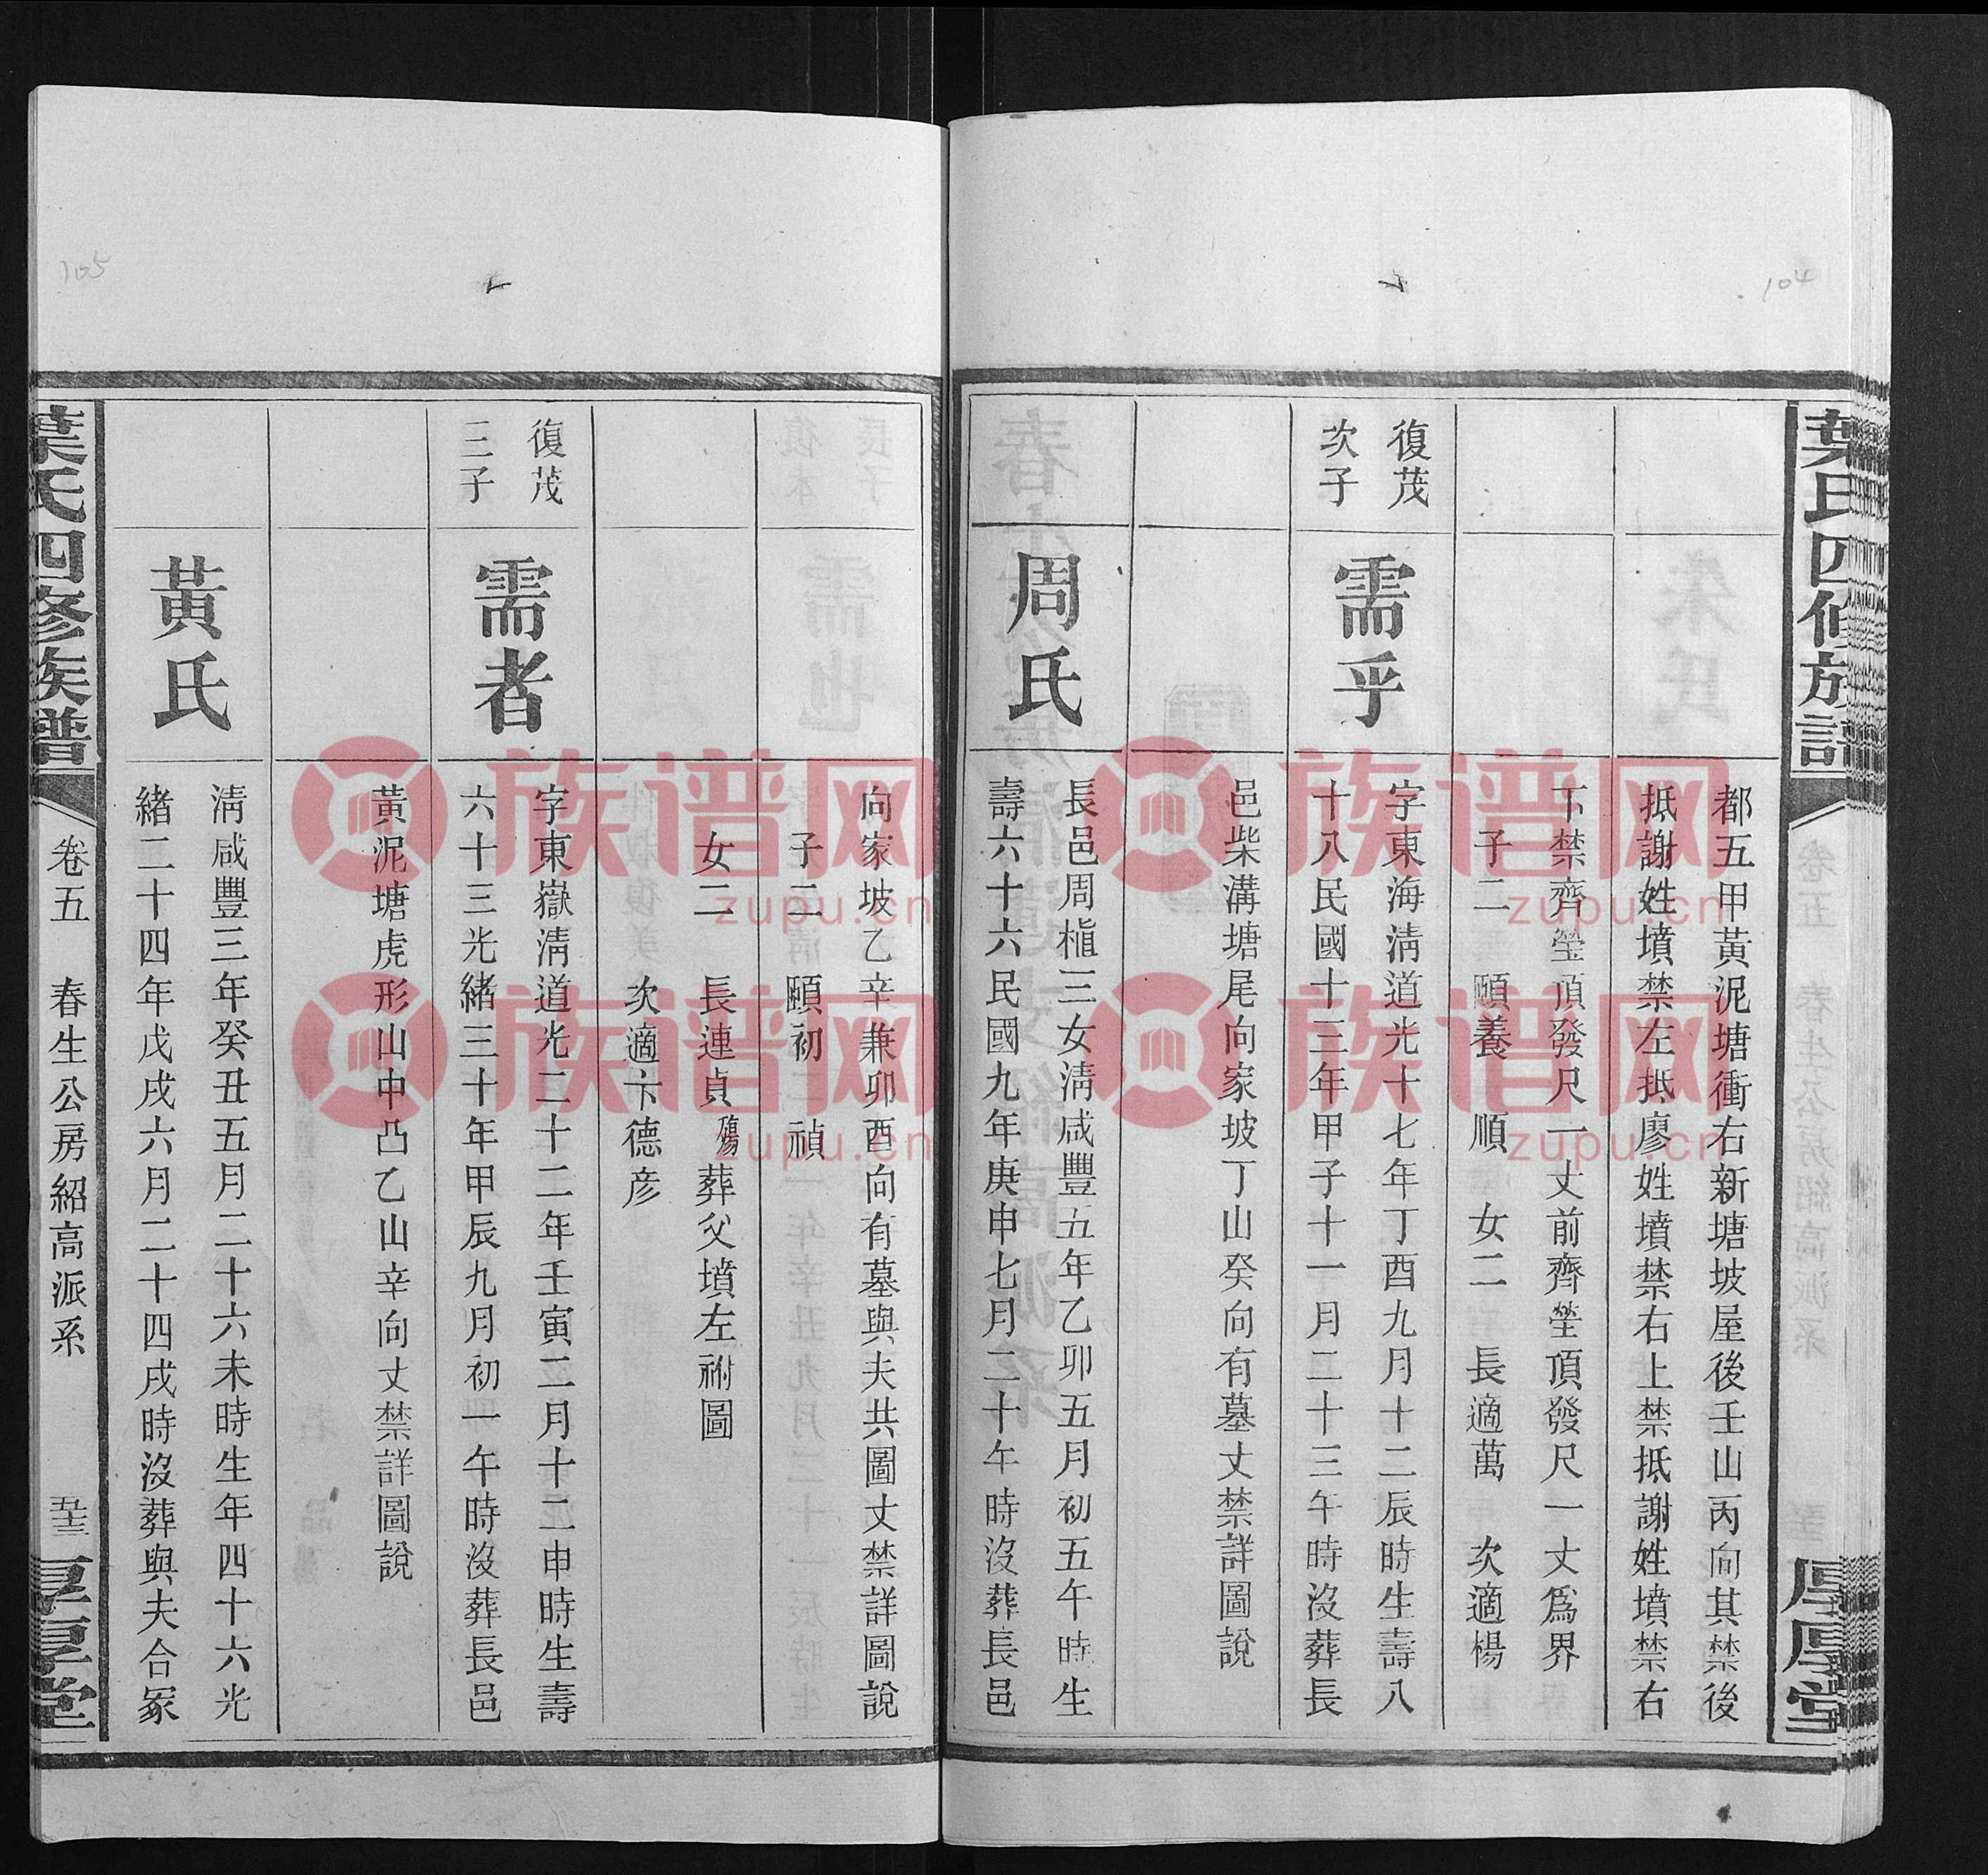 104
葉氏四修族譜
厚厚堂
都五甲黃泥塘衝右新塘坡屋後壬山丙向其禁後
抵謝姓墳禁左抵廖姓墳禁右上禁抵謝姓墳禁右
下禁齊塋頂發尺一丈前齊塋頂發尺一丈爲界
子二 頤養 順 女二 長適萬 次適楊
復茂
次子
需乎
字東海清道光十七年丁酉九月十二辰時生壽八
十八民國十三年甲子十一月二十三午時沒葬長
邑柴溝塘尾向家坡丁山癸向有墓丈禁詳圖說
周氏
長邑周植三女清咸豐五年乙卯五月初五午時生
壽六十六民國九年庚申七月二十午時沒葬長邑
向家坡乙辛兼卯酉向有墓與夫共圖丈禁詳圖說
子二 頤初 禎
女二 長連貞殤葬父墳左祔圖
次適卞德彦
復茂
三子
需者
字東嶽清道光二十二年壬寅二月十二申時生壽
六十三光緒三十年甲辰九月初一午時沒葬長邑
黃泥塘虎形山中凸乙山辛向丈禁詳圖說
黃氏
清咸豐三年癸丑五月二十六未時生年四十六光
緒二十四年戊戌六月二十四戌時沒葬與夫合冢
葉氏四修族譜
卷五 春生公房紹高派系
五十三
厚厚堂
105
族谱网
zupu.cn
族谱网
zupu.cn
族谱网
zupu.cn
族谱网
zupu.cn